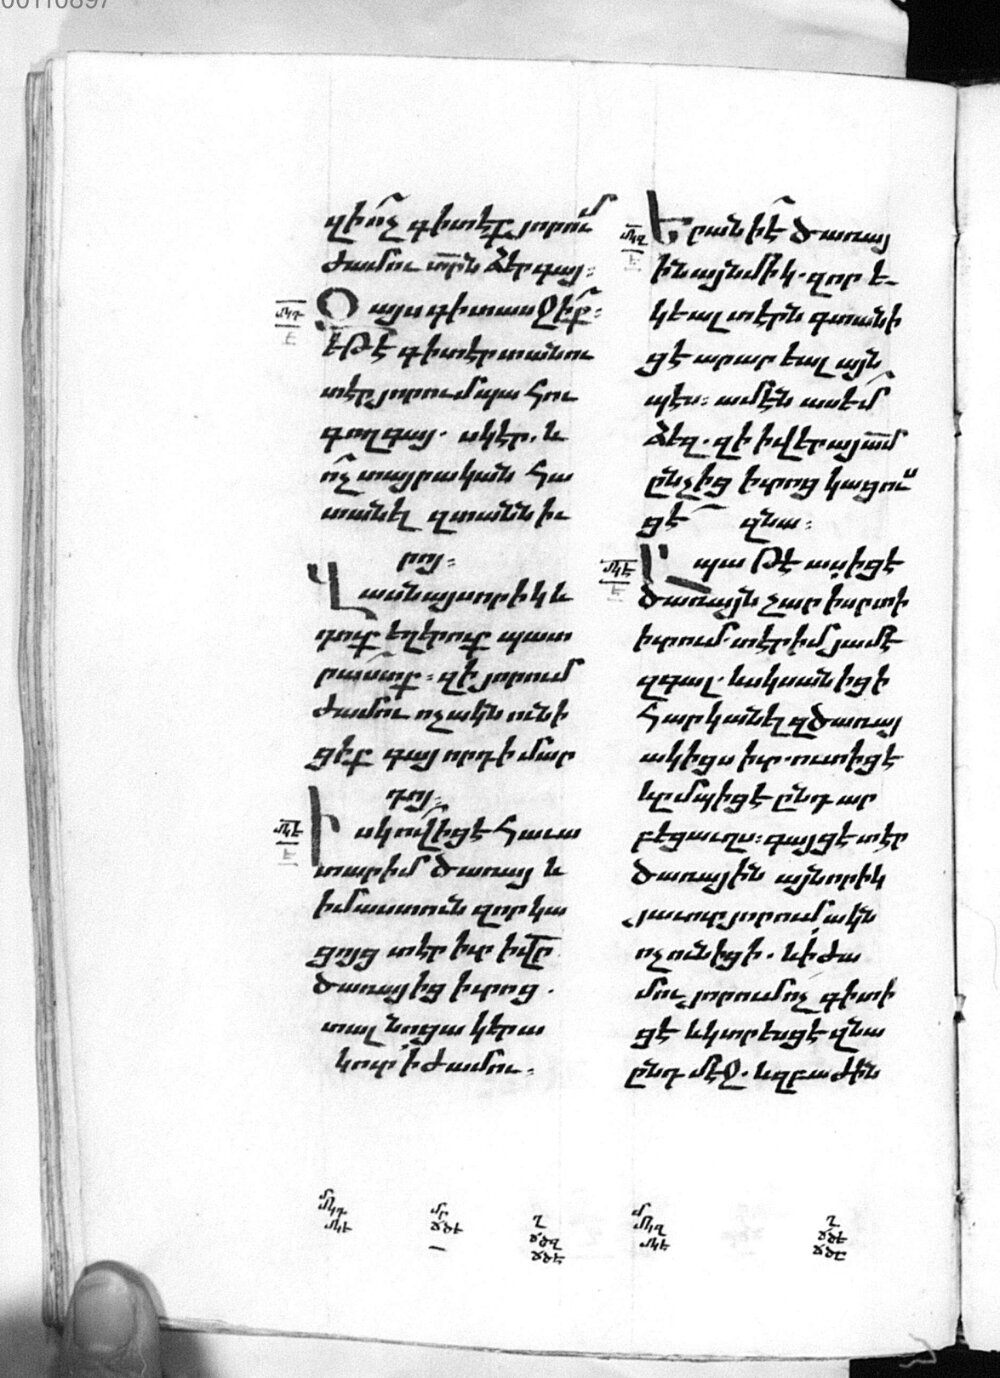 00110897
զի ո՞չ գիտէք յորում
ժամու տրն ձեր գայ։
Զ այս գիտասջիք։
եթէ գիտէր տանու
տէր յորում պահու
գող գայ. սկէր. և
ո՛չ տայր ական հա
տանել զտանն իւ
րոյ։
Վ ասն այսորիկ և
դուք եղերուք պատ
րաստք. զի յորում
ժամու ոչ ակն ունի
ցիք գայ որդի մար
դոյ։
Ի սկ ո՞վ իցէ հաւա
տարիմ ծառայ և
իմաստուն զոր կա
ցոյց տէր իւր ի վր
ծառայից իւրոց.
տալ նոցա կերա
կուր ի ժամու։
Ե րանի է ծառայ
ին այնմիկ. զոր ե
կեալ տէրն գտանի
ցէ արարեալ այն
պէս։ ամէն ասեմ
ձեզ. զի ի վերայ ամ
ընչից իւրոց կացու
ցէ զնա։
Ա պա թէ ասիցէ
ծառայն չար ի սրտի
իւրում. տէր իմ յամէ
զգալ. և սկսանիցի
հարկանել զծառայ
ակիցս իւր. ուտիցէ
և ըմպիցէ ընդ ար
բեցաւղս։ գայցէ տէր
ծառային այնորիկ
յաւուր յորում ակն
ոչ ունիցի. և ի ժա
մու յորում ոչ գիտի
ցէ և կտրեսցէ զնա
ընդ մէջ. և զբաժին